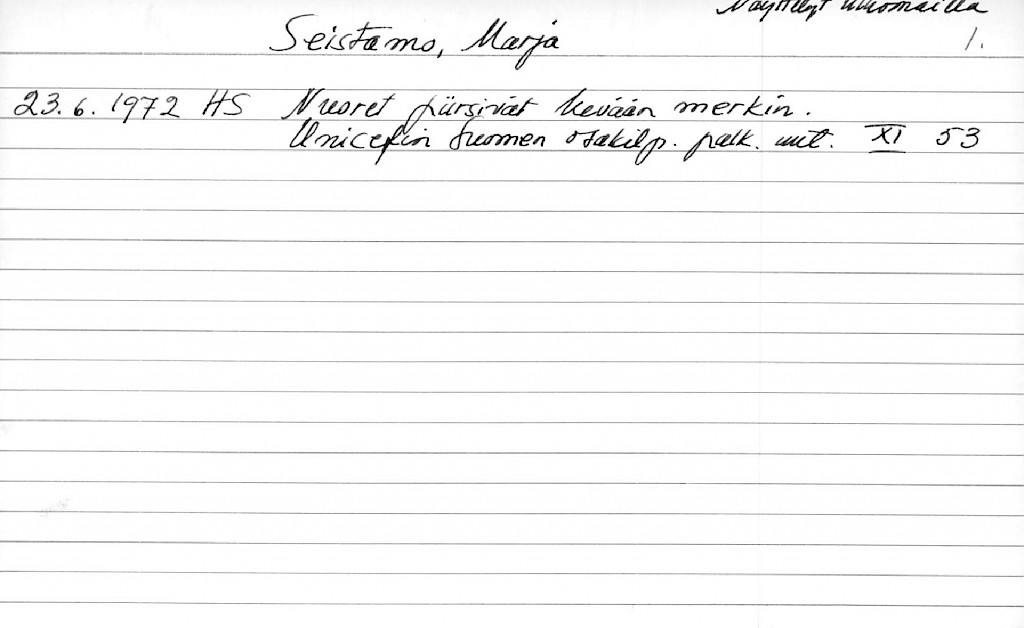 Näyttelyt ulkomailla
Seistamo, Marja 1.
23.6.1972 HS Nuoret piirsivät kevään merkin.
Unicefin Suomen osakilp. palk. uut. XI 53